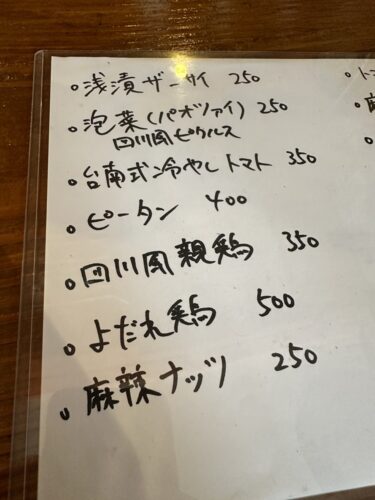 ・浅漬ザーサイ 250
・泡菜(パオツァイ) 250
四川風ピクルス
・台南式冷やしトマト 350
・ピータン 400
・四川風親鶏 350
・よだれ鶏 500
・麻辣ナッツ 250
・ト